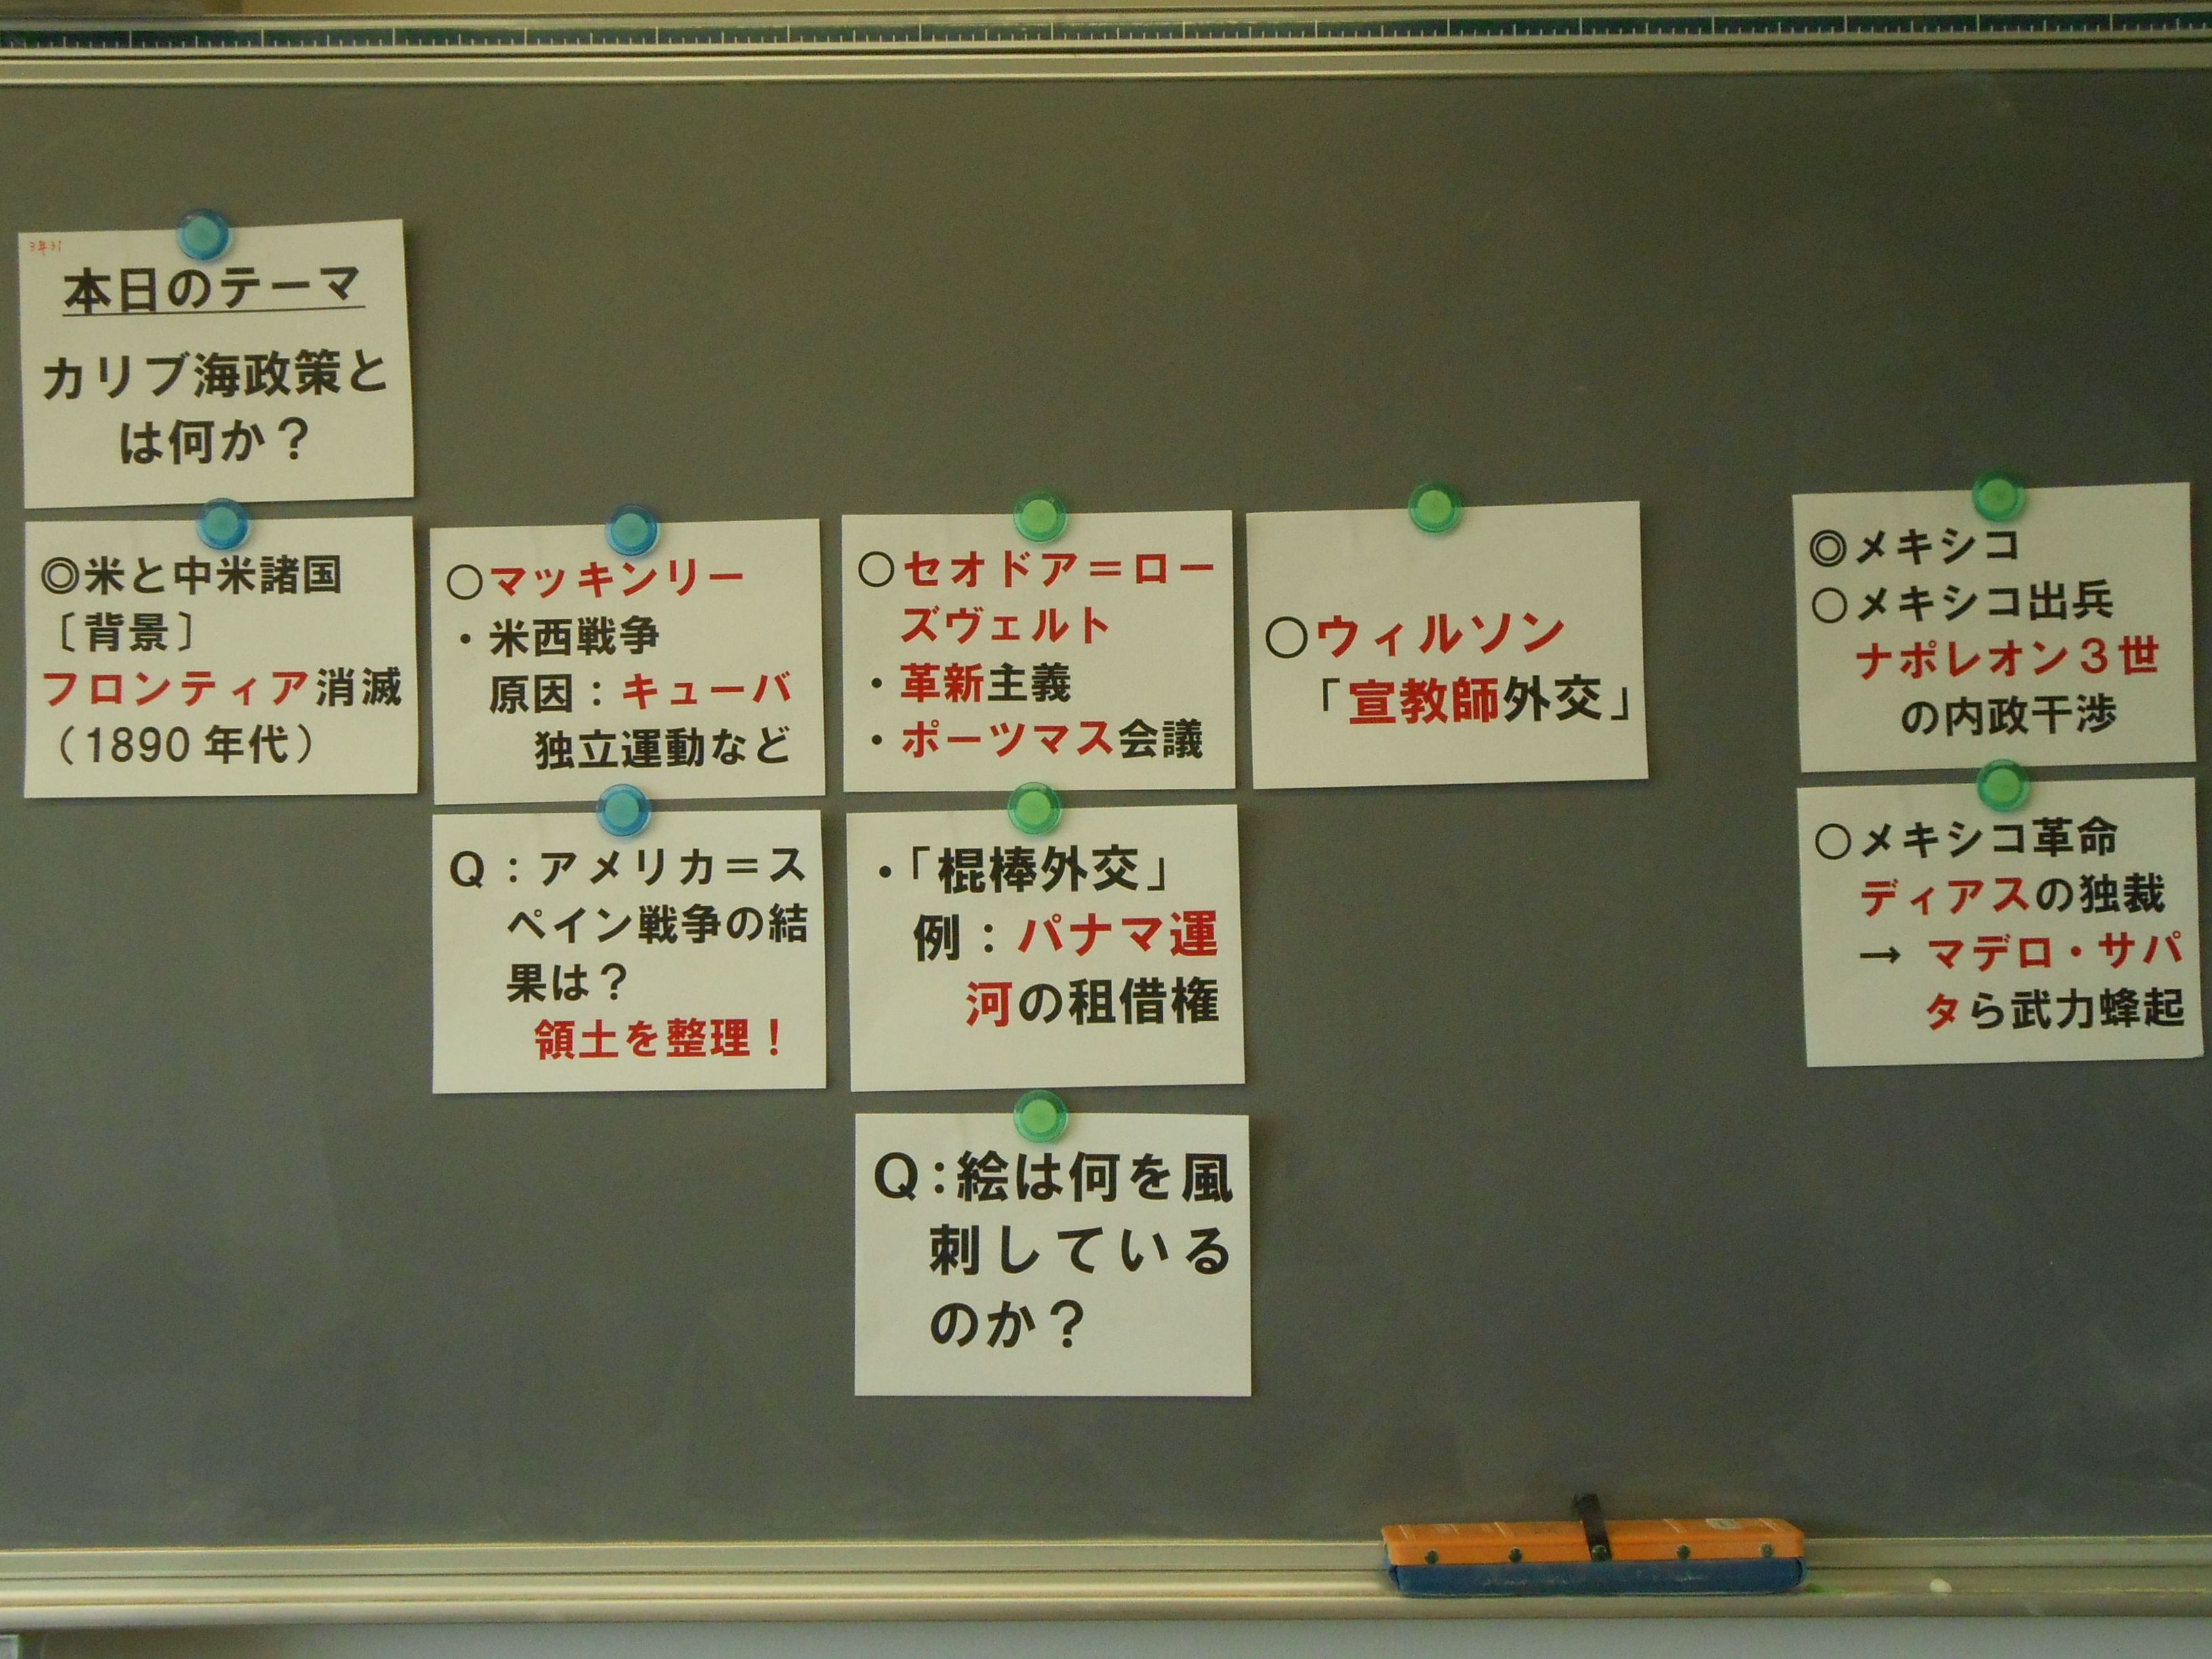 本日のテーマ
カリブ海政策と
は何か？
◎米と中米諸国
〔背景〕
フロンティア消滅
（1890年代）
○マッキンリー
・米西戦争
原因：キューバ
独立運動など
Q：アメリカ＝ス
ペイン戦争の結
果は？
領土を整理！
○セオドア＝ロー
ズヴェルト
・革新主義
・ポーツマス会議
・「棍棒外交」
例：パナマ運
河の租借権
Q：絵は何を風
刺している
のか？
○ウィルソン
「宣教師外交」
◎メキシコ
○メキシコ出兵
ナポレオン３世
の内政干渉
○メキシコ革命
ディアスの独裁
→ マデロ・サパ
タら武力蜂起